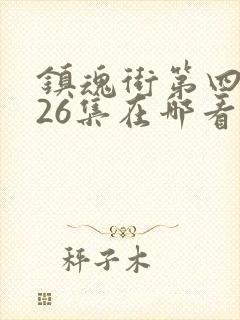 鎮魂街第四
26集在哪看
秤子木